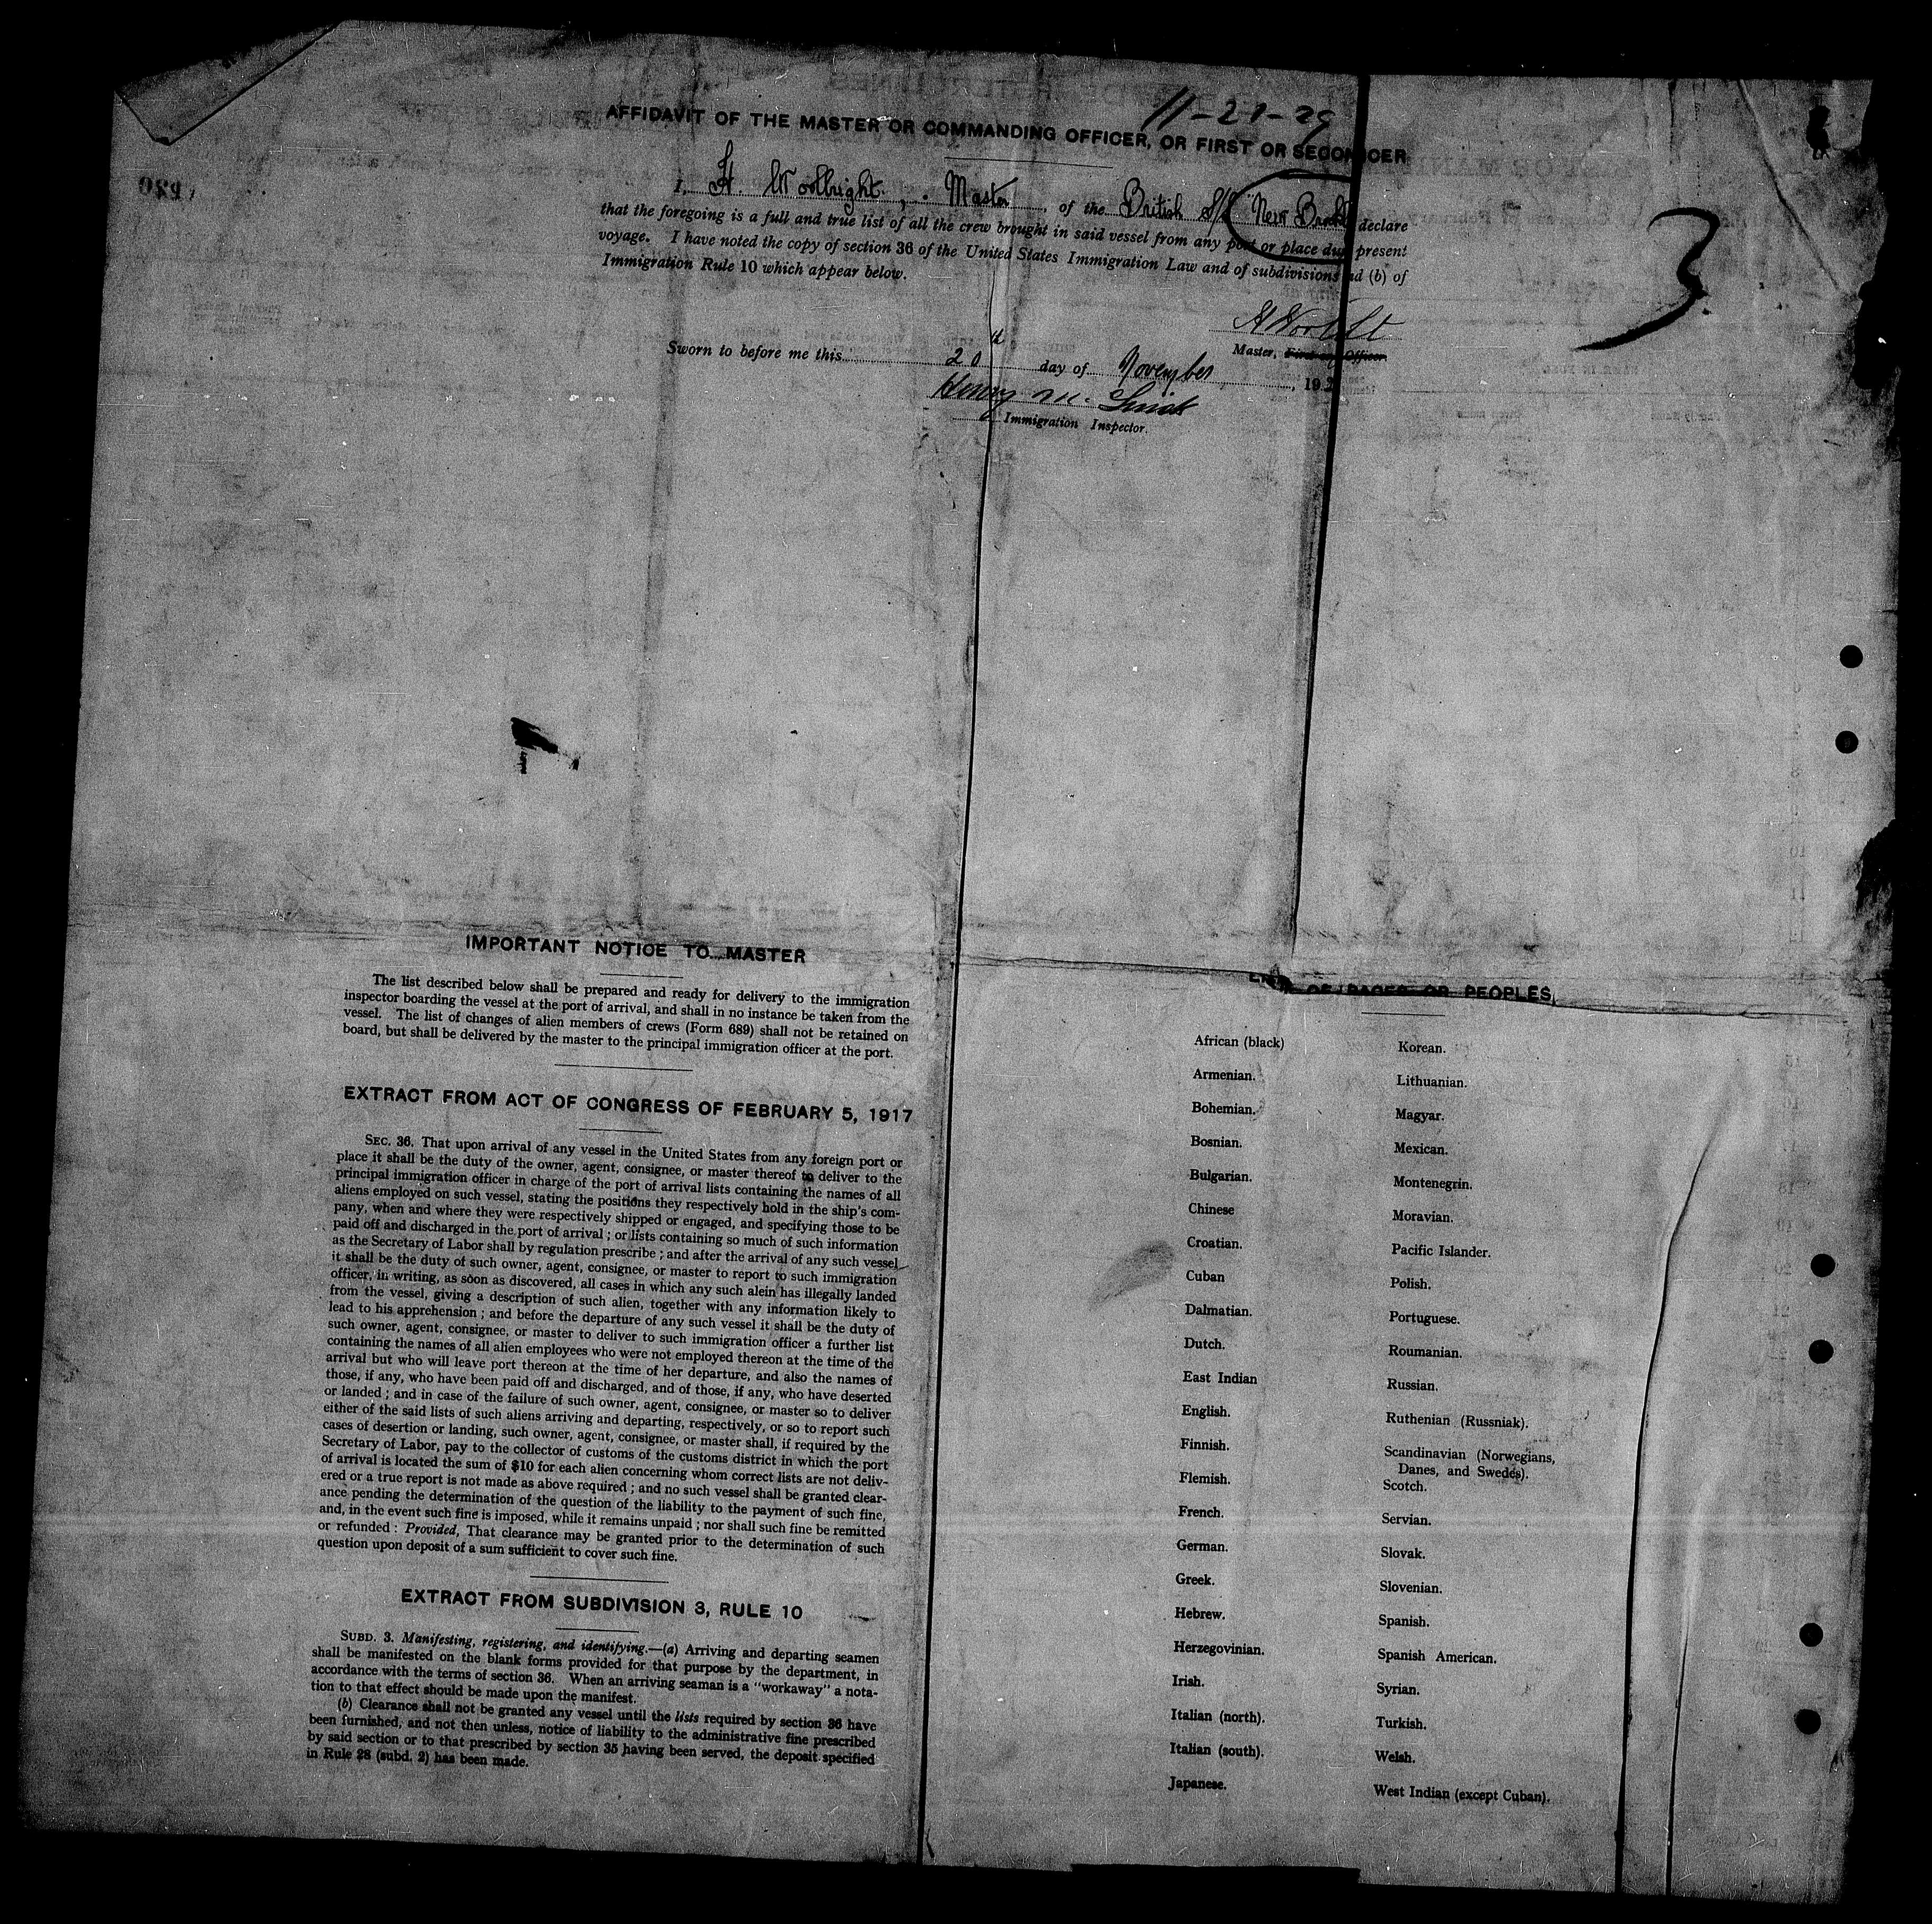 11-21-29
AFFIDAVIT OF THE MASTER OR COMMANDING OFFICER, OR FIRST OR SECON ICER
I, H. Woolright, Master, of the British S/S New Brook declare
that the foregoing is a full and true list of all the crew brought in said vessel from any port or place du present
voyage. I have noted the copy of section 36 of the United States Immigration Law and of subdivisions nd (b) of
Immigration Rule 10 which appear below.
3
Master, First or Officer
Sworn to before me this 20th day of November, 192
Henry M.
Immigration Inspector.
IMPORTANT NOTICE TO MASTER
The list described below shall be prepared and ready for delivery to the immigration
inspector boarding the vessel at the port of arrival, and shall in no instance be taken from the
vessel. The list of changes of alien members of crews (Form 689) shall not be retained on
board, but shall be delivered by the master to the principal immigration officer at the port.
EXTRACT FROM ACT OF CONGRESS OF FEBRUARY 5, 1917
SEC. 36. That upon arrival of any vessel in the United States from any foreign port or
place it shall be the duty of the owner, agent, consignee, or master thereof to deliver to the
principal immigration officer in charge of the port of arrival lists containing the names of all
aliens employed on such vessel, stating the positions they respectively hold in the ship's com-
pany, when and where they were respectively shipped or engaged, and specifying those to be
paid off and discharged in the port of arrival; or lists containing so much of such information
as the Secretary of Labor shall by regulation prescribe; and after the arrival of any such vessel
it shall be the duty of such owner, agent, consignee, or master to report to such immigration
officer, in writing, as soon as discovered, all cases in which any such alein has illegally landed
from the vessel, giving a description of such alien, together with any information likely to
lead to his apprehension; and before the departure of any such vessel it shall be the duty of
such owner, agent, consignee, or master to deliver to such immigration officer a further list
containing the names of all alien employees who were not employed thereon at the time of the
arrival but who will leave port thereon at the time of her departure, and also the names of
those, if any, who have been paid off and discharged, and of those, if any, who have deserted
or landed; and in case of the failure of such owner, agent, consignee, or master so to deliver
either of the said lists of such aliens arriving and departing, respectively, or so to report such
cases of desertion or landing, such owner, agent, consignee, or master shall, if required by the
Secretary of Labor, pay to the collector of customs of the customs district in which the port
of arrival is located the sum of $10 for each alien concerning whom correct lists are not deliv-
ered or a true report is not made as above required; and no such vessel shall be granted clear-
ance pending the determination of the question of the liability to the payment of such fine,
and, in the event such fine is imposed, while it remains unpaid; nor shall such fine be remitted
or refunded: Provided, That clearance may be granted prior to the determination of such
question upon deposit of a sum sufficient to cover such fine.
EXTRACT FROM SUBDIVISION 3, RULE 10
SUBD. 3. Manifesting, registering, and identifying.—(a) Arriving and departing seamen
shall be manifested on the blank forms provided for that purpose by the department, in
accordance with the terms of section 36. When an arriving seaman is a "workaway" a nota-
tion to that effect should be made upon the manifest.
(b) Clearance shall not be granted any vessel until the lists required by section 36 have
been furnished, and not then unless, notice of liability to the administrative fine prescribed
by said section or to that prescribed by section 35 having been served, the deposit specified
in Rule 28 (subd. 2) has been made.
OF RACES OR PEOPLES
African (black)
Armenian.
Bohemian.
Bosnian.
Bulgarian.
Chinese
Croatian.
Cuban
Dalmatian.
Dutch.
East Indian
English.
Finnish.
Flemish.
French.
German.
Greek.
Hebrew.
Herzegovinian.
Irish.
Italian (north).
Italian (south).
Japanese.
Korean.
Lithuanian.
Magyar.
Mexican.
Montenegrin.
Moravian.
Pacific Islander.
Polish.
Portuguese.
Roumanian.
Russian.
Ruthenian (Russniak).
Scandinavian (Norwegians,
Danes, and Swedes).
Scotch.
Servian.
Slovak.
Slovenian.
Spanish.
Spanish American.
Syrian.
Turkish.
Welsh.
West Indian (except Cuban).